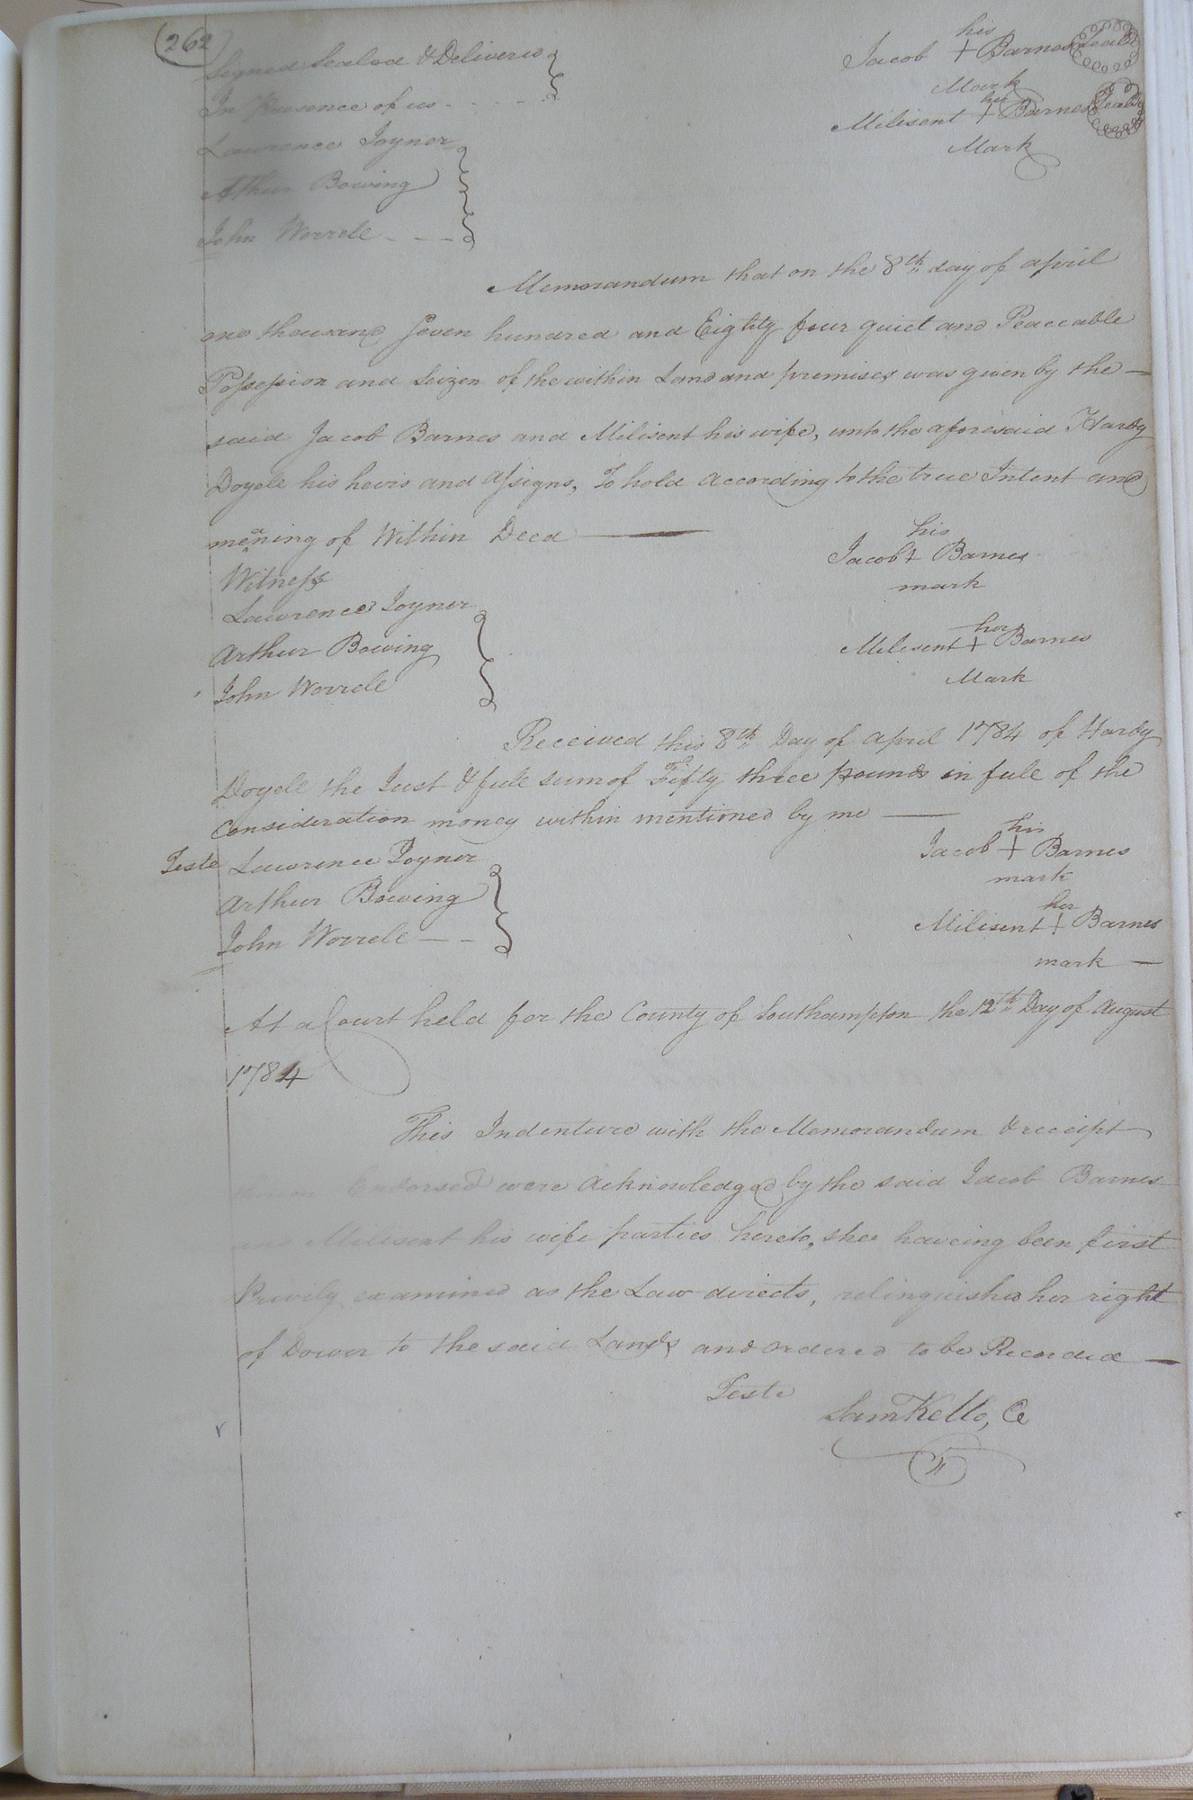 (262)
Signed Sealed & Delivered
In Presence of us - - - - -
Lawrence Joyner
Arthur Bowing
John Worrele - - -
his
Jacob + Barnes Seal
Mark
her
Milisent + Barnes Seal
Mark
Memorandum that on the 8th day of april
one thousand Seven hundred and Eighty four quiet and Peaceable
Possession and Seizen of the within Land and premises was given by the —
said Jacob Barnes and Milisent his wife, unto the aforesaid Hardy
Doyele his heirs and assigns, To hold according to the true Intent and
meaning of Within Deed ———
Witness
Lawrence Joyner
Arthur Bowing
John Worrele
his
Jacob + Barnes
mark
her
Milisent + Barnes
Mark
Received this 8th Day of april 1784 of Hardy
Doyele the Just & full sum of Fifty three pounds in full of the
Consideration money within mentioned by me ——
Teste Lawrence Joyner
Arthur Bowing
John Worrele — -
his
Jacob + Barnes
mark
her
Milisent + Barnes
mark —
At a Court held for the County of Southampton the 12th Day of August
1784
This Indenture with the Memorandum & receipt
Endorsed were acknowledged by the said Jacob Barnes
and Milisent his wife parties hereto, shee haveing been first
Privily examined as the Law directs, relinquished her right
of Dower to the said Lands and ordered to be Recorded —
Teste
Sam Kello, Cc